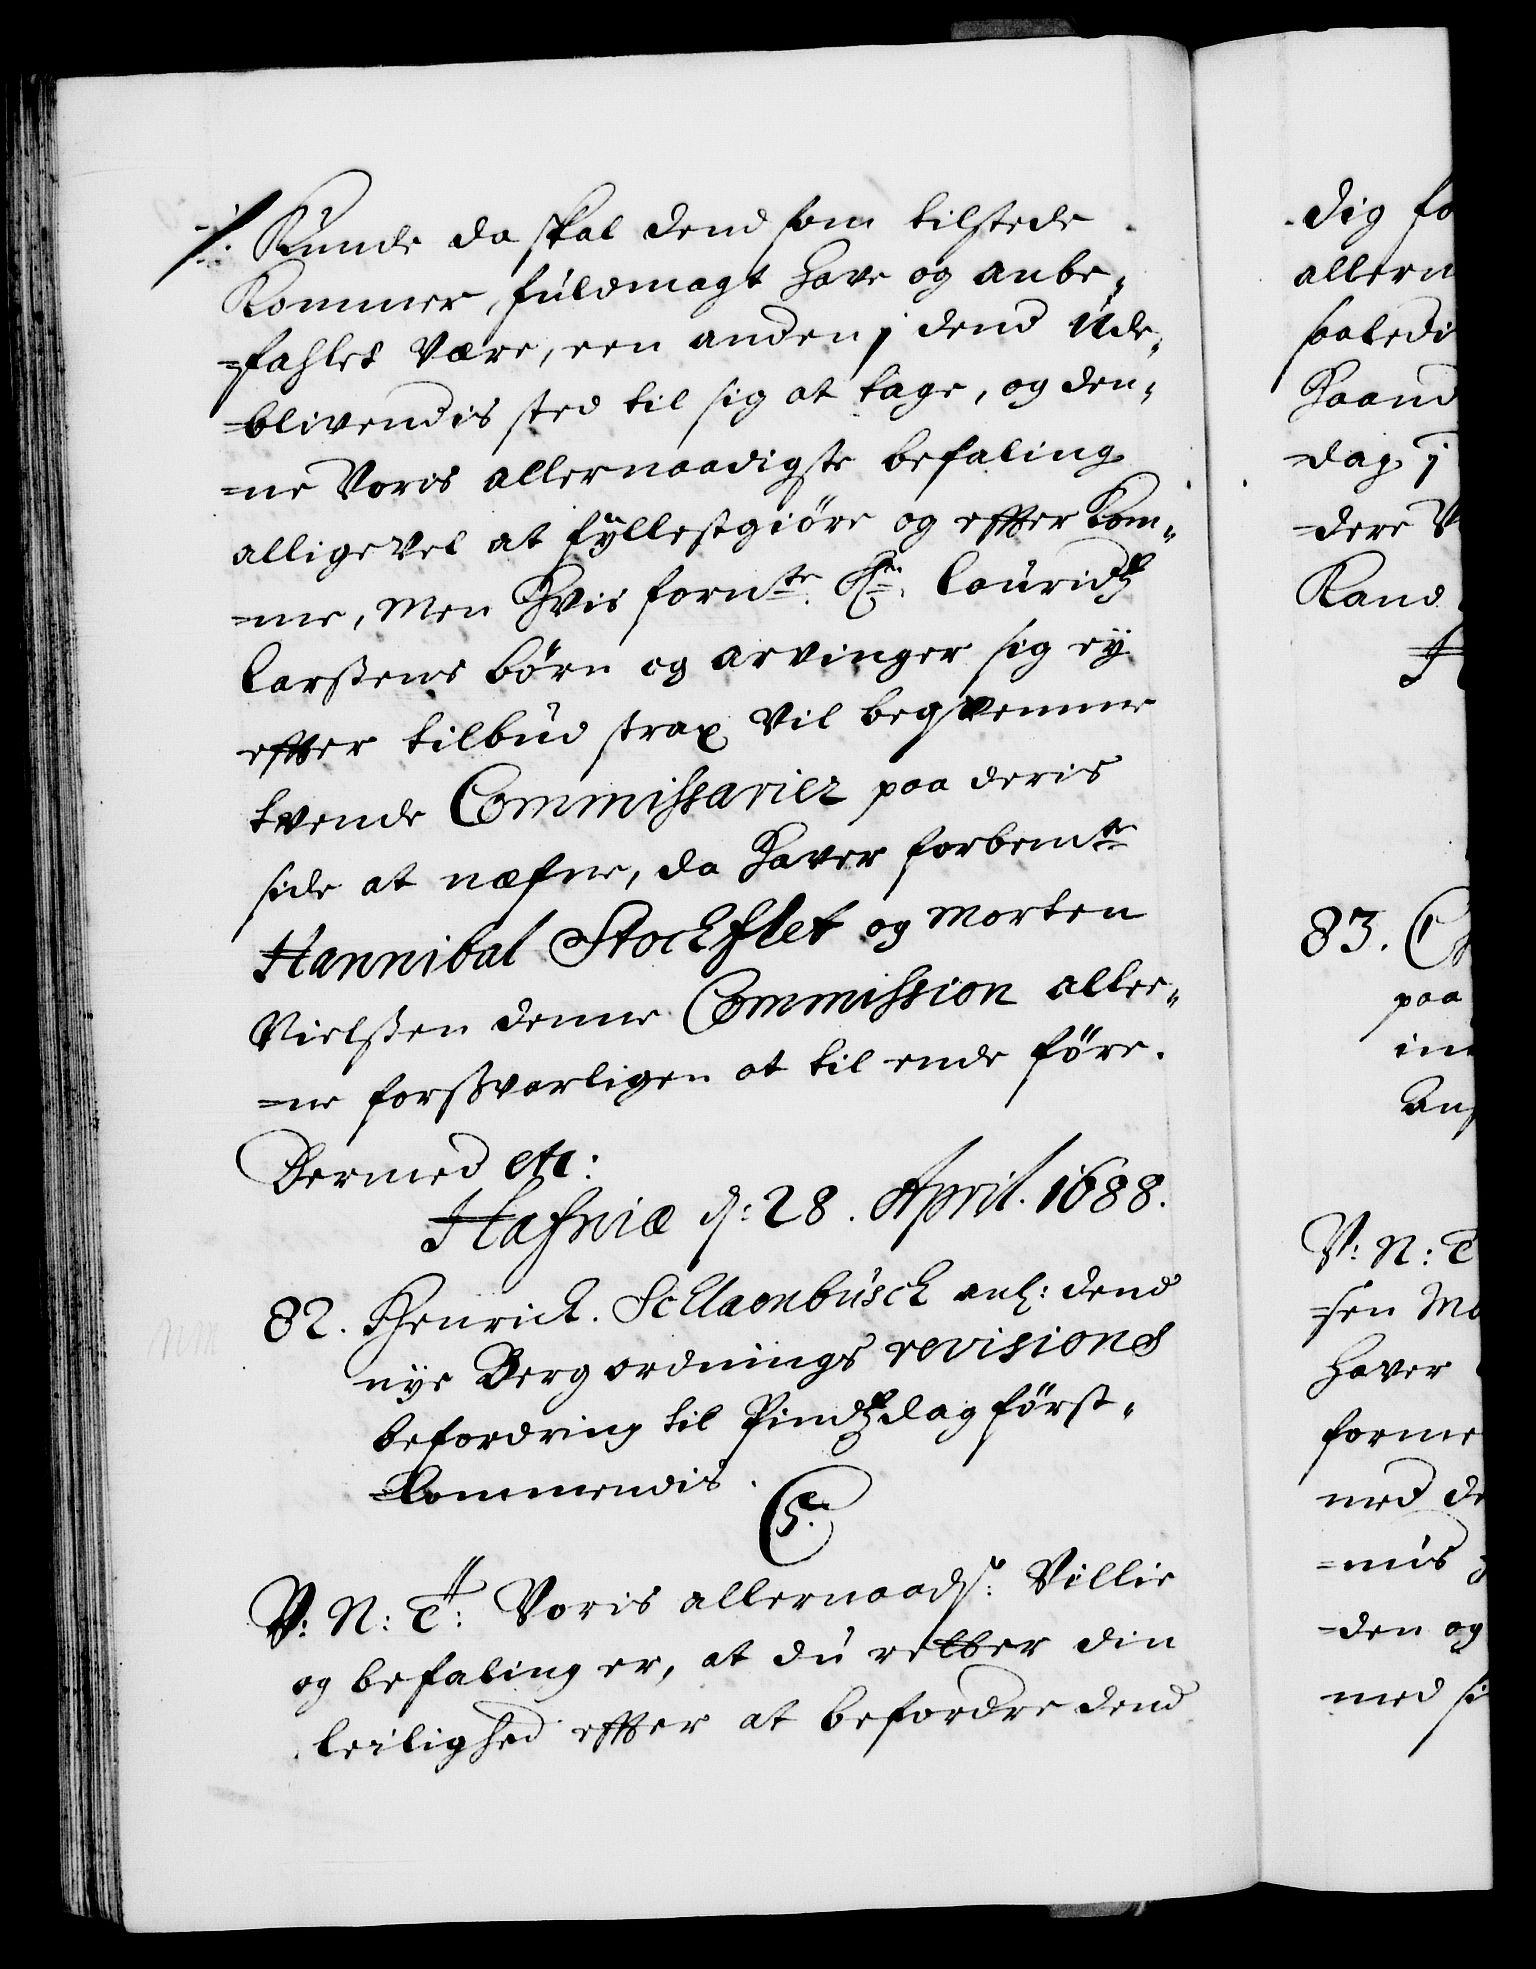 /: Kunde da skal dend som tilstede
Kommer, fuldmagt have og anbe„
=fahlet være, een anden j dend ude„
=blivendis sted til sig at tage, og den„
=ne Voris allernaadigste befaling
alligevel at fyllestgiöre og effter kom„
=me, Men hvis fornte Hr: Lauridtz
Larßens börn og arvinger sig ey
effter tilbud strax vil beqvemme
tvende Commissarier paa deris
side at næfne, da haver forbemte
Hannibal Stockflet og Morten
Nielßen denne Commission alle„
=ne forßvarligen at til ende före.
Dermed etc:
Hafniæ d: 28. April. 1688.
82. Henrick. Schlaonbusch anl: dend
nye Bergordnings revisions
befordring til Pindtzdag först„
=kommendis.
C5.
V: N: T: Voris allernaads: Villie
og befaling er, at du retter din
leilighed effter at befordre dend
dig fo
allern
saaledi
haand
dag j
=dere V
Kand
H
83. Ch
paa
in
V: N: T
=sen Mo
haver
forme
med de
=mis
=den og
med si